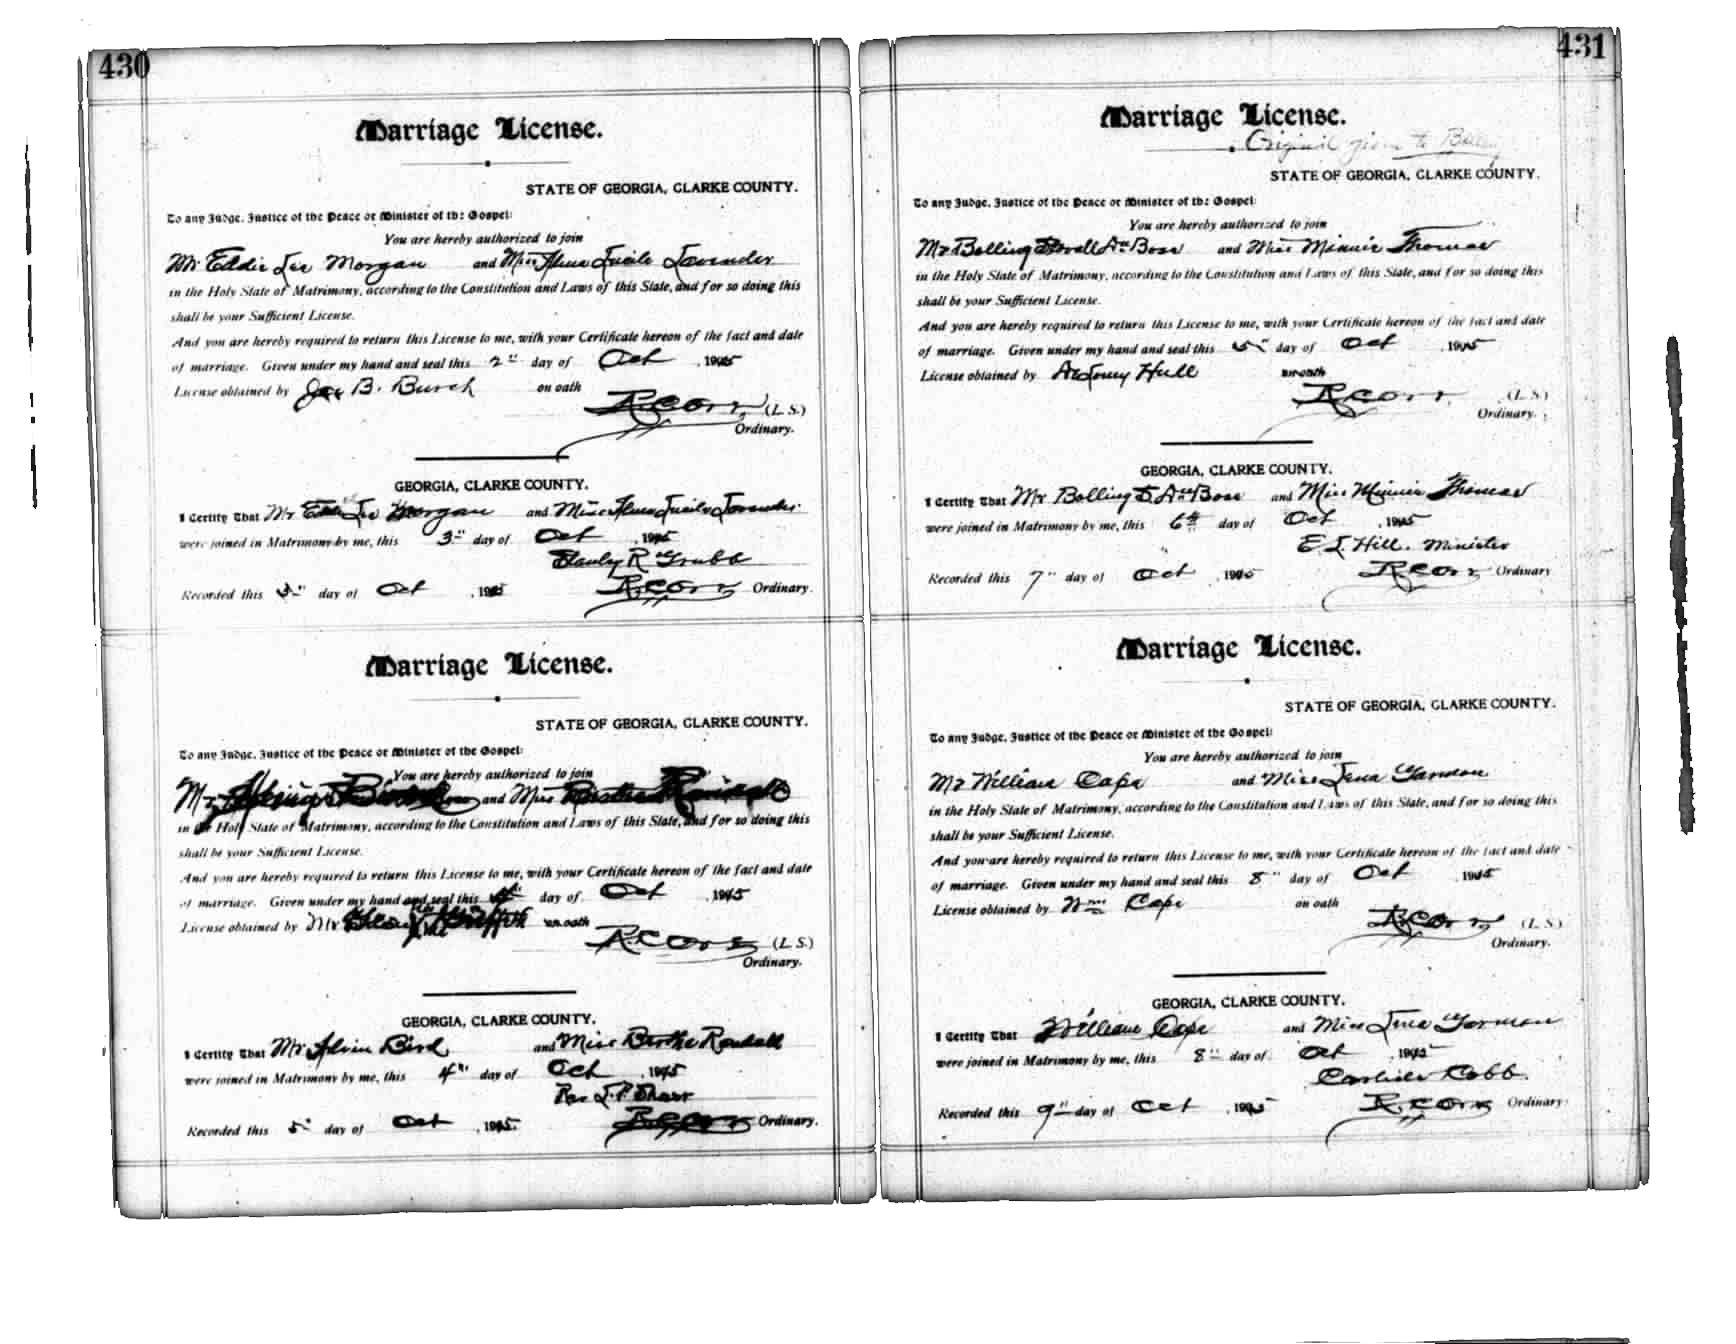 430
Marriage License.
STATE OF GEORGIA, CLARKE COUNTY.
To any Judge, Justice of the Peace or Minister of the Gospel:
You are hereby authorized to join
Mr. Eddie Lee Morgan and Miss Lucile Lavender
in the Holy State of Matrimony, according to the Constitution and Laws of this State, and for so doing this
shall be your Sufficient License.
And you are hereby required to return this License to me, with your Certificate hereon of the fact and date
of marriage. Given under my hand and seal this 2" day of Oct , 1905
License obtained by Joe B. Burch on oath
R C Orr (L. S.)
Ordinary.
GEORGIA, CLARKE COUNTY.
I Certify That Mr Lee Morgan and Miss Lucile Lavender
were joined in Matrimony by me, this 3" day of Oct , 1905
R Grubb
Recorded this day of Oct , 1905 R C Orr Ordinary.
Marriage License.
STATE OF GEORGIA, CLARKE COUNTY.
To any Judge, Justice of the Peace or Minister of the Gospel:
You are hereby authorized to join
Mr and Miss
in the Holy State of Matrimony, according to the Constitution and Laws of this State, and for so doing this
shall be your Sufficient License.
And you are hereby required to return this License to me, with your Certificate hereon of the fact and date
of marriage. Given under my hand and seal this day of Oct , 1905
License obtained by Mr on oath
R C Orr (L. S.)
Ordinary.
GEORGIA, CLARKE COUNTY.
I Certify That Mr Alvin Bird and Miss Randall
were joined in Matrimony by me, this 4" day of Oct , 1905
Rev
Recorded this 5" day of Oct , 1905 Ordinary.
431
Marriage License.
Original given to Bolling
STATE OF GEORGIA, CLARKE COUNTY.
To any Judge, Justice of the Peace or Minister of the Gospel:
You are hereby authorized to join
Mr Bolling DuBose and Miss Minnie Thomas
in the Holy State of Matrimony, according to the Constitution and Laws of this State, and for so doing this
shall be your Sufficient License.
And you are hereby required to return this License to me, with your Certificate hereon of the fact and date
of marriage. Given under my hand and seal this 5" day of Oct , 1905
License obtained by Hull on oath
R C Orr (L. S.)
Ordinary.
GEORGIA, CLARKE COUNTY.
I Certify That Mr Bolling S. DuBose and Miss Minnie Thomas
were joined in Matrimony by me, this 6th day of Oct , 1905
E. L. Hill. Minister
Recorded this 7" day of Oct , 1905 R C Orr Ordinary
Marriage License.
STATE OF GEORGIA, CLARKE COUNTY.
To any Judge, Justice of the Peace or Minister of the Gospel:
You are hereby authorized to join
Mr William Cape and Miss Lena
in the Holy State of Matrimony, according to the Constitution and Laws of this State, and for so doing this
shall be your Sufficient License.
And you are hereby required to return this License to me, with your Certificate hereon of the fact and date
of marriage. Given under my hand and seal this 8" day of Oct , 1905
License obtained by Wm Cape on oath
R C Orr (L. S.)
Ordinary.
GEORGIA, CLARKE COUNTY.
I Certify That William Cape and Miss Lena
were joined in Matrimony by me, this 8" day of Oct , 1905
Carlisle Cobb.
Recorded this 9" day of Oct , 1905 R C Orr Ordinary